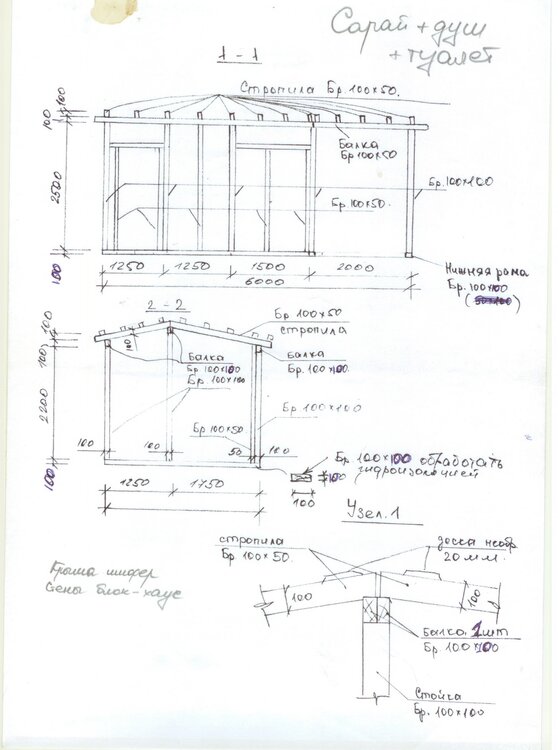 Сарай + душ
+ туалет
1 - 1
Стропила Бр. 100х50.
100
100
Балка
Бр 100х50
2500
Бр. 100х100
Бр. 100х50.
100
1250
1250
1500
2000
6000
Нижняя рама
Бр. 100х100
2 - 2
Бр. 100х50
стропила
100
100
100
Балка
Бр 100х100
Бр. 100х100
Балка
Бр. 100х100.
2200
Бр 100х50
Бр 100х100
100
100
50
100
100
Бр 100х100 обработать
гидроизоляцией
100
100
1250
1750
Узел.1
стропила
Бр 100х50
доска необр.
20 мм.
Крыша шифер
Сены блок-хаус
100
100
Балка 1шт
Бр 100х100
Стойка
Бр. 100х100